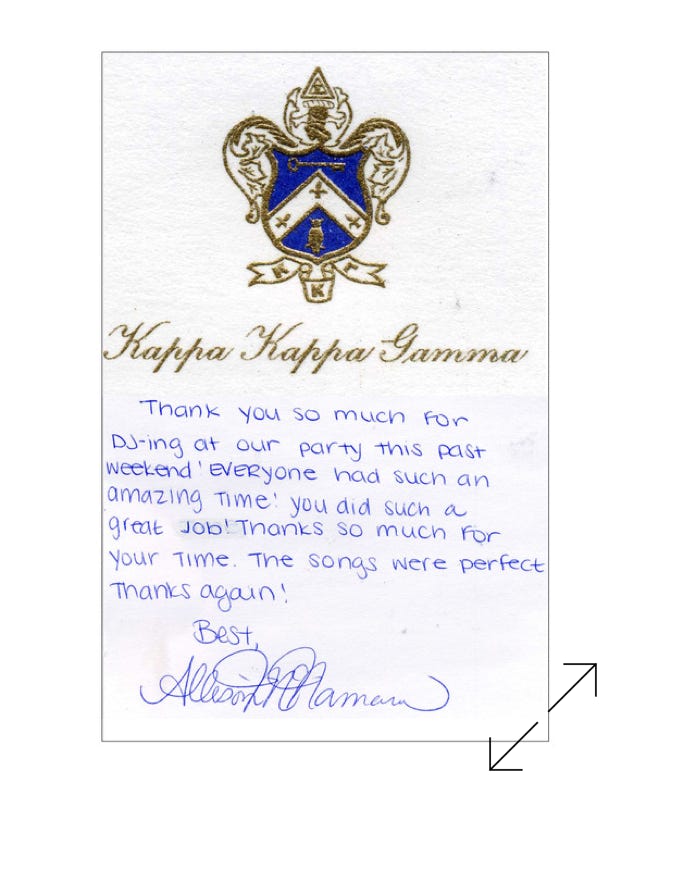 K K Γ
Kappa Kappa Gamma
Thank you so much for
DJ-ing at our party this past
weekend! EVERyone had such an
amazing Time! you did such a
great Job! Thanks so much for
your Time. The songs were perfect
Thanks again!
Best,
Allison McNamara